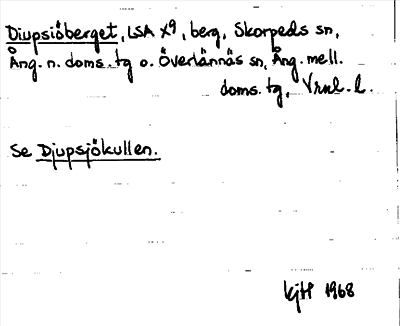 Diupsiöberget, LSA X9, berg, Skorpeds sn,
Ång. n. doms. tg o. Överlännäs sn, Ång. mell.
doms. tg, Vrnl. l.
Se Djupsjökullen.
1968